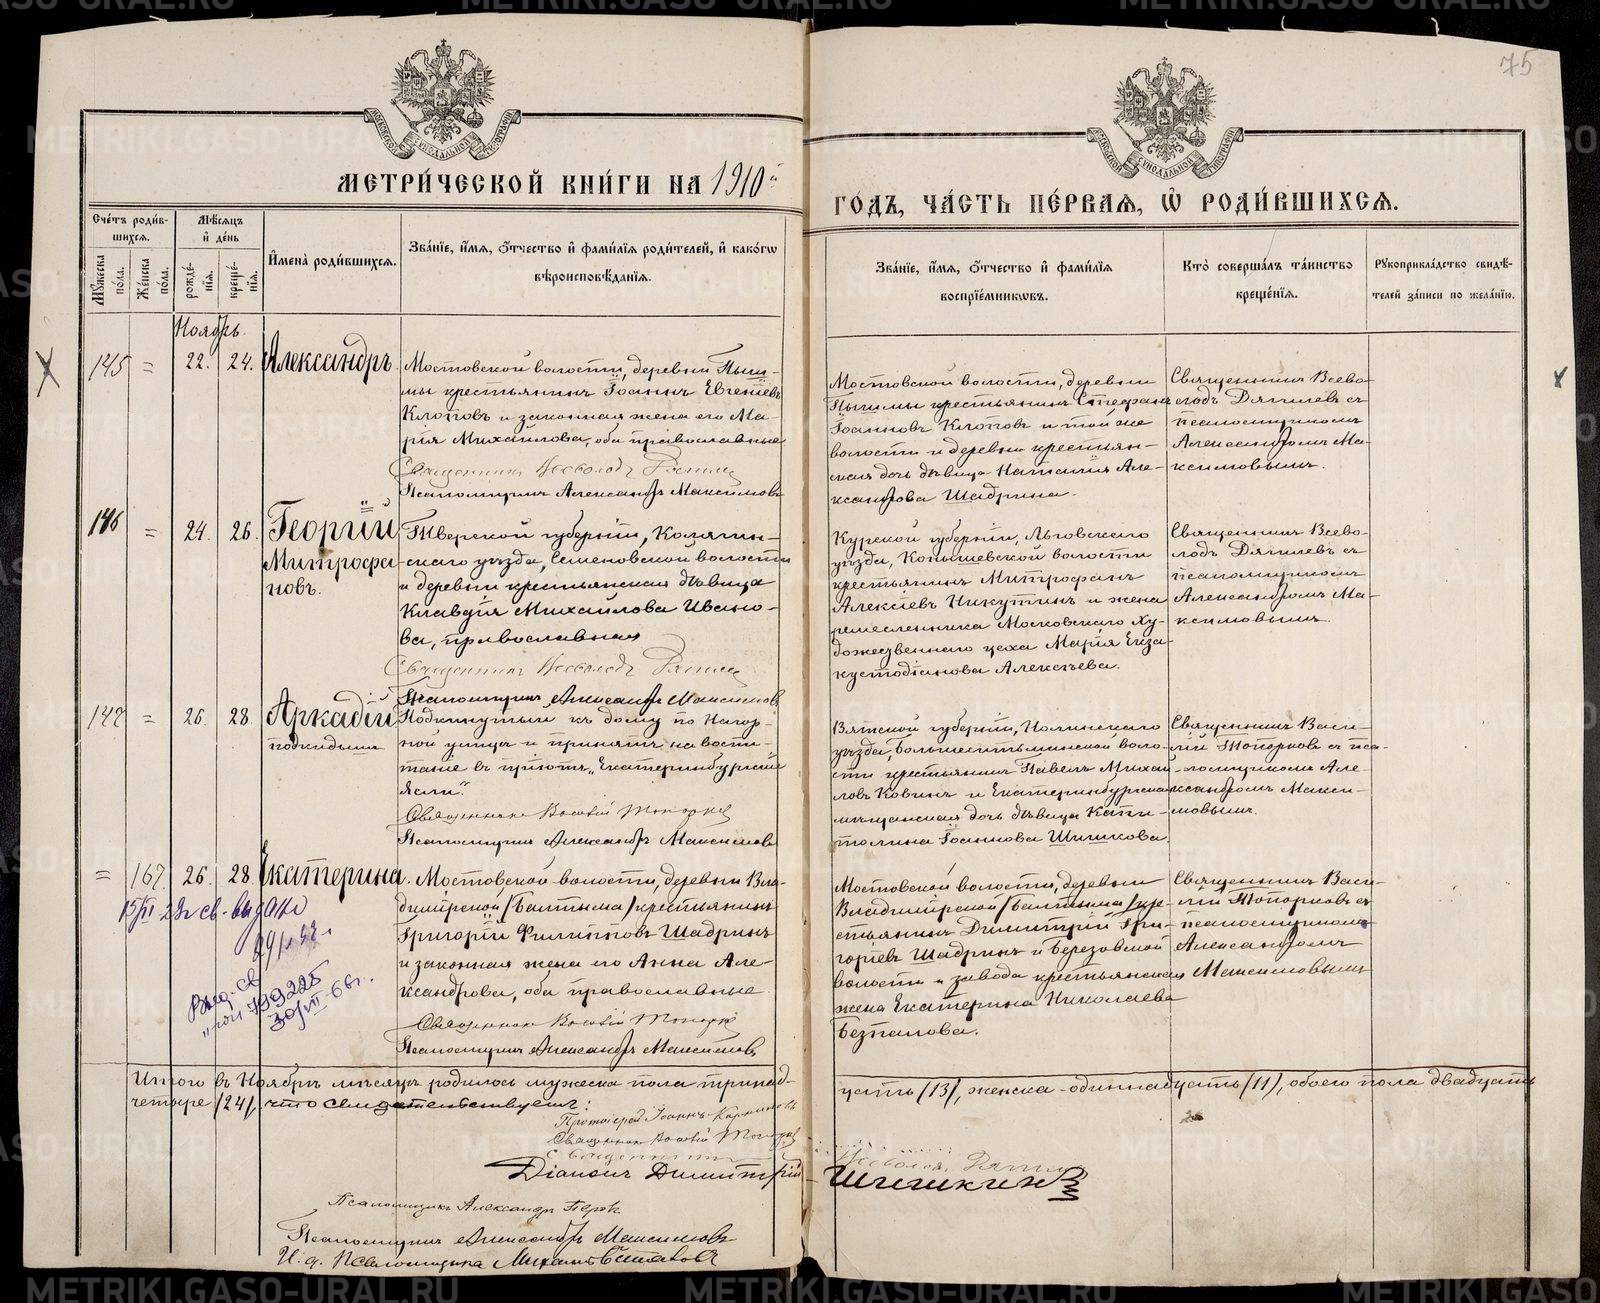 75
МЕТРИ́ЧЕСКОЙ КНИ́ГИ НА 1910й
ГО́ДЪ, ЧА́СТЬ ПЕ́РВАЯ, Ѡ҆ РОДИ́ВШИХСЯ.
Сче́тъ роди́в-
шихся.
Му́жеска по́ла.
Же́нска по́ла.
Мѣ́сяцъ
и҆ де́нь
рожде́-
нїя.
креще́-
нїя.
И҆мена̀ роди́вшихся.
Зва́нїе, и҆́мя, ѻ҆́тчество и҆ фами́лїя роди́телей, и҆ како́гѡ
вѣроисповѣ́данїя.
Зва́нїе, и҆́мя, ѻ҆́тчество и҆ фами́лїя
воспрїе́мникѡвъ.
Кто̀ соверша́лъ та́инство
креще́нїя.
Рꙋкоприкла́дство свидѣ́-
телей за́писи по жела́нїю.
Ноябрь.
145 = 22. 24. Александръ.
Мостовской волости, деревни Пыш-
мы крестьянинъ Іоаннъ Евгеніевъ
Клоповъ и законная жена его Ма-
рія Михайлова, оба православные
Священникъ Всеволодъ
Псаломщикъ Александръ Максимовъ
Мостовской волости, деревни
Пышмы крестьянинъ Стефанъ
Іоанновъ Клоповъ и той же
волости и деревни крестьян-
ская дочь дѣвица Наталія Але-
ксандрова Шадрина.
Священникъ Всево-
лодъ Дягилевъ съ
псаломщикомъ
Александромъ Ма-
ксимовымъ.
146 = 24. 26. Георгій
Митрофа
новъ.
Тверской губерніи, Колязин-
скаго уѣзда, Семеновской волости
и деревни крестьянская дѣвица
Клавдія Михайлова Ивано-
ва, православная
Священникъ Всеволодъ
Псаломщикъ Александръ Максимов
Курской губерніи, Льговскаго
уѣзда, Конышевской волости
крестьянинъ Митрофанъ
Алексіевъ Никутинъ и жена
ремесленника Московскаго Ху-
дожественнаго цеха Марія Екза-
кустодіанова Алексѣева.
Священникъ Всево-
лодъ Дягилевъ съ
псаломщикомъ
Александромъ Ма-
ксимовымъ.
147 = 26. 28. Аркадій
подкидышъ
Подкинутый къ дому по Нагор-
ной улицѣ и принятъ на воспи-
таніе въ пріютъ „Екатеринбургскіе
ясли".
Священникъ Василій Топорков
Псаломщикъ Александръ Максимовъ
Вятской губерніи, Нолинскаго
уѣзда, Большеситьминской воло-
сти крестьянинъ Павелъ Михай-
ловъ Ковинъ и Екатеринбургская
мѣщанская дочь дѣвица Капи-
толина Іоаннова Шишкова.
Священникъ Васи-
лій Топорковъ съ пса-
ломщикомъ Але-
ксандромъ Макси-
мовымъ.
= 167. 26. 28. Екатерина.
Мостовской волости, деревни Вла-
димірской /Балтыма/ крестьянинъ
Григорій Филипповъ Шадринъ
и законная жена его Анна Але-
ксандрова, оба православные
Священникъ Василій Топорков
Псаломщикъ Александръ Максимовъ
Мостовской волости, деревни
Владимірской /Балтыма/ кре-
стьянинъ Димитрій Гри-
горіевъ Шадринъ и Березовской
волости и завода крестьянская
жена Екатерина Николаева
Безпалова.
Священникъ Васи-
лій Топорковъ съ
псаломщикомъ
Александромъ
Максимовымъ
Выд. св
799225
30/VII-66г.
Итого въ Ноябрѣ мѣсяцѣ родилось мужеска пола тринад-
цать /13/, женска - одиннадцать /11/, обоего пола двадцать
четыре /24/, что свидетельствуемъ:
Протоіерей Іоаннъ
Священникъ Василій Топорков
Священникъ Всеволодъ
Діаконъ Димитрій Шишкинъ
Псаломщикъ Александръ
Псаломщикъ Александръ Максимовъ
И. д. Псаломщика Михаилъ
METRIKI.GASO-URAL.RU